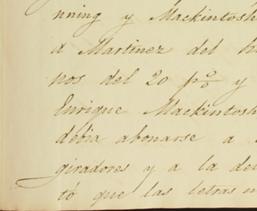 nning y Mackintosh
a Martinez del h
nos del 20 p% y
Enrique Mackintosh
debia abonarse a
giradores y a la de
tó que las letras